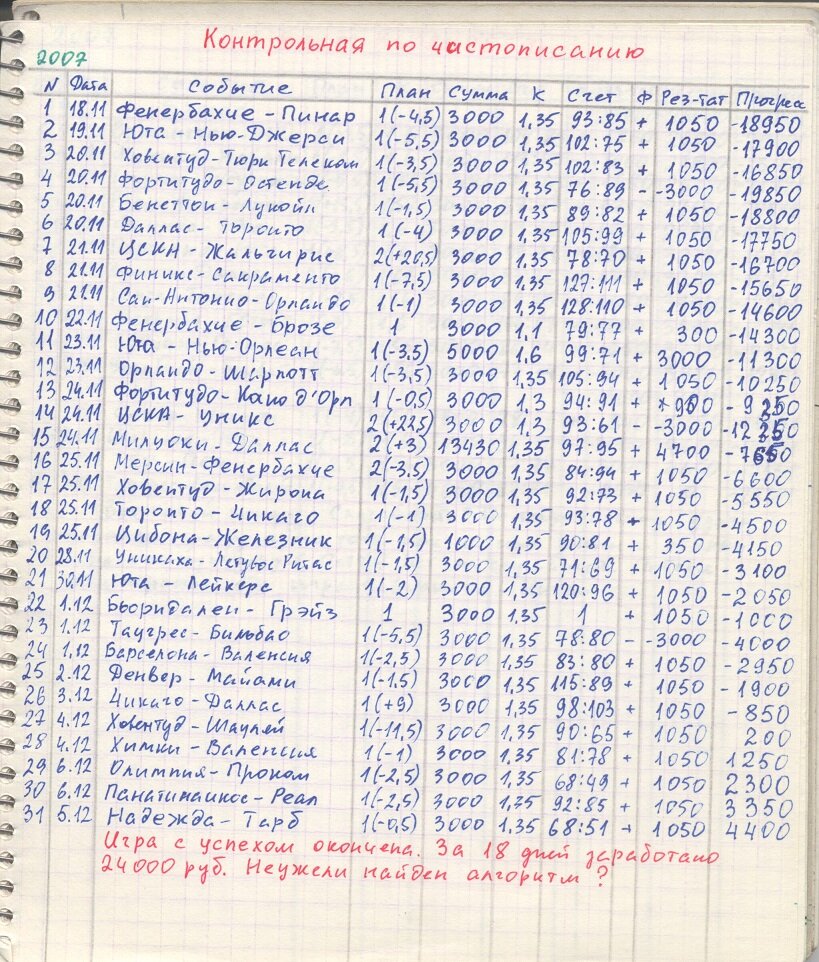 Контрольная по чистописанию
2007
N Дата Событие План Сумма К Счет Ф Рез-тат Прогресс
1 18.11 Фенербахче - Пинар 1(-4,5) 3000 1,35 93:85 + 1050 -18950
2 19.11 Юта - Нью-Джерси 1(-5,5) 3000 1,35 102:75 + 1050 -17900
3 20.11 Ховентуд - Тюрк Телеком 1(-3,5) 3000 1,35 102:83 + 1050 -16850
4 20.11 Фортитудо - Остенде 1(-5,5) 3000 1,35 76:89 - -3000 -19850
5 20.11 Бенеттон - Лукойл 1(-1,5) 3000 1,35 89:82 + 1050 -18800
6 20.11 Даллас - Торонто 1(-4) 3000 1,35 105:99 + 1050 -17750
7 21.11 ЦСКА - Жальгирис 2(+20,5) 3000 1,35 78:70 + 1050 -16700
8 21.11 Финикс - Сакраменто 1(-7,5) 3000 1,35 127:111 + 1050 -15650
9 21.11 Сан-Антонио - Орландо 1(-1) 3000 1,35 128:110 + 1050 -14600
10 22.11 Фенербахче - Брозе 1 3000 1,1 79:77 + 300 -14300
11 23.11 Юта - Нью-Орлеан 1(-3,5) 5000 1,6 99:71 + 3000 -11300
12 23.11 Орландо - Шарлотт 1(-3,5) 3000 1,35 105:94 + 1050 -10250
13 24.11 Фортитудо - Капо д'Орл 1(-0,5) 3000 1,3 94:91 + 900 -9250
14 24.11 ЦСКА - Уникс 2(+22,5) 3000 1,3 93:61 - -3000 -12250
15 24.11 Милуоки - Даллас 2(+3) 13430 1,35 97:95 + 4700 -7650
16 25.11 Мерсин - Фенербахче 2(-3,5) 3000 1,35 84:94 + 1050 -6600
17 25.11 Ховентуд - Жирона 1(-1,5) 3000 1,35 92:73 + 1050 -5550
18 25.11 Торонто - Чикаго 1(-1) 3000 1,35 93:78 + 1050 -4500
19 25.11 Цибона - Железник 1(-1,5) 1000 1,35 90:81 + 350 -4150
20 28.11 Уникаха - Летувос Ритас 1(-1,5) 3000 1,35 71:69 + 1050 -3100
21 30.11 Юта - Лейкерс 1(-2) 3000 1,35 120:96 + 1050 -2050
22 1.12 Бьорндален - Грэйз 1 3000 1,35 1 + 1050 -1000
23 1.12 Таугрес - Бильбао 1(-5,5) 3000 1,35 78:80 - -3000 -4000
24 1.12 Барселона - Валенсия 1(-2,5) 3000 1,35 83:80 + 1050 -2950
25 2.12 Денвер - Майами 1(-1,5) 3000 1,35 115:89 + 1050 -1900
26 3.12 Чикаго - Даллас 1(+9) 3000 1,35 98:103 + 1050 -850
27 4.12 Ховентуд - Шауляй 1(-11,5) 3000 1,35 90:65 + 1050 200
28 4.12 Химки - Валенсия 1(-1) 3000 1,35 81:78 + 1050 1250
29 6.12 Олимпия - Проком 1(-2,5) 3000 1,35 68:49 + 1050 2300
30 6.12 Панатинаикос - Реал 1(-2,5) 3000 1,35 92:85 + 1050 3350
31 5.12 Надежда - Тарб 1(-0,5) 3000 1.35 68:51 + 1050 4400
Игра с успехом окончена. За 18 дней заработано
24000 руб. Неужели найден алгоритм?